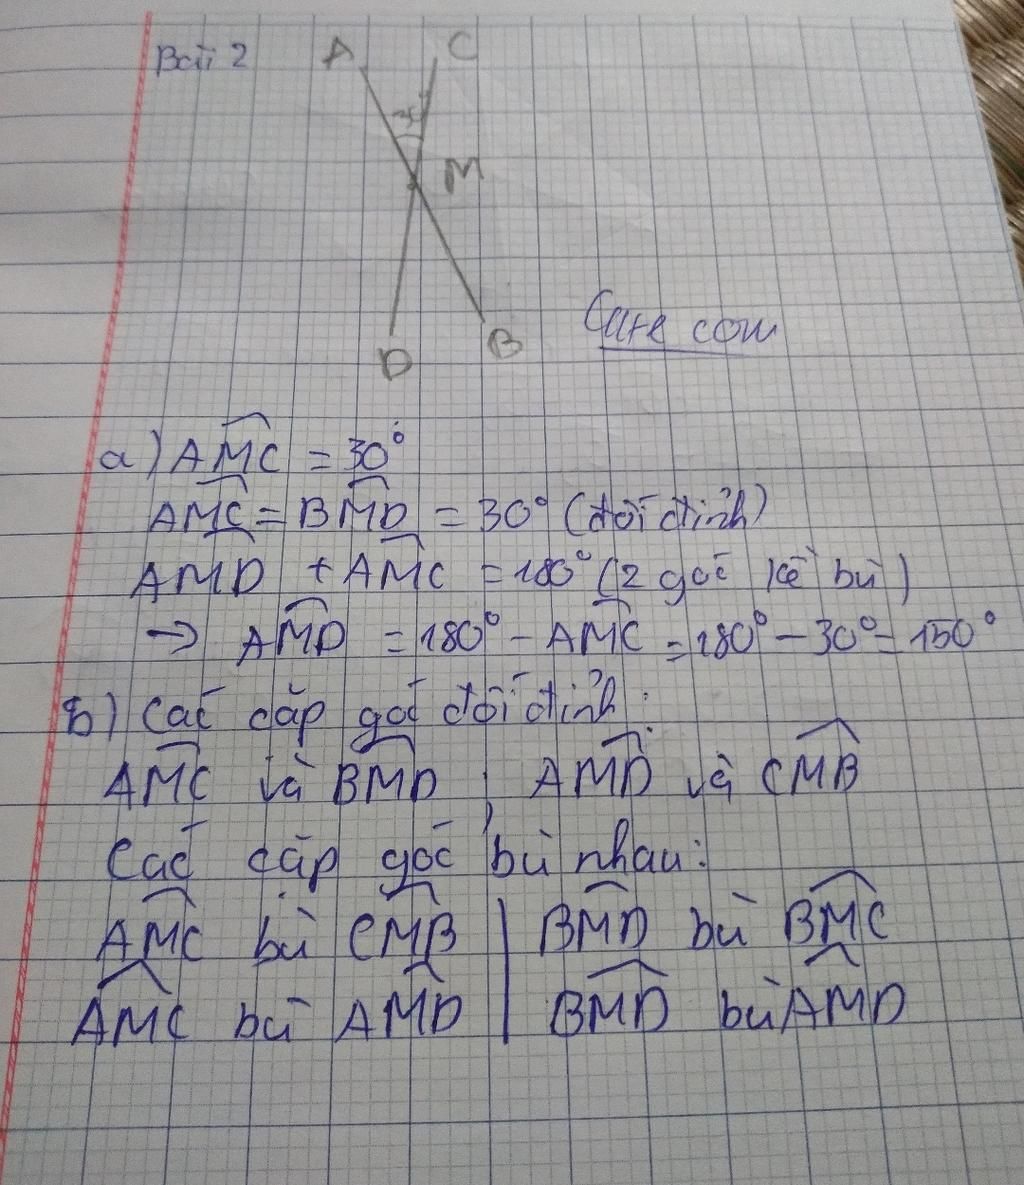 Bài 2
A C
30°
M
D B
a) AMC = 30°
AMC = BMD = 30° (đối đỉnh)
AMD + AMC = 180° (2 góc kề bù)
→ AMD = 180° - AMC = 180° - 30° = 150°
b) Các cặp góc đối đỉnh:
AMC và BMD ; AMD và CMB
Các cặp góc bù nhau:
AMC bù CMB | BMD bù BMC
AMC bù AMD | BMD bù AMD